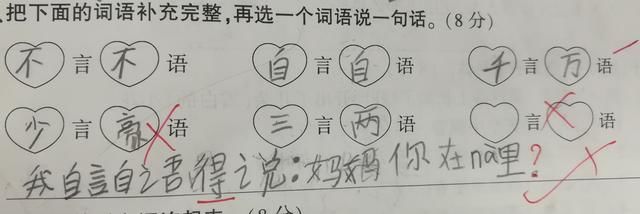 把下面的词语补充完整,再选一个词语说一句话。(8分)
不言不语 自言自语 千言万语
少言豪语 三言两语 言语
我自言自语得之说:妈妈你在nà里?